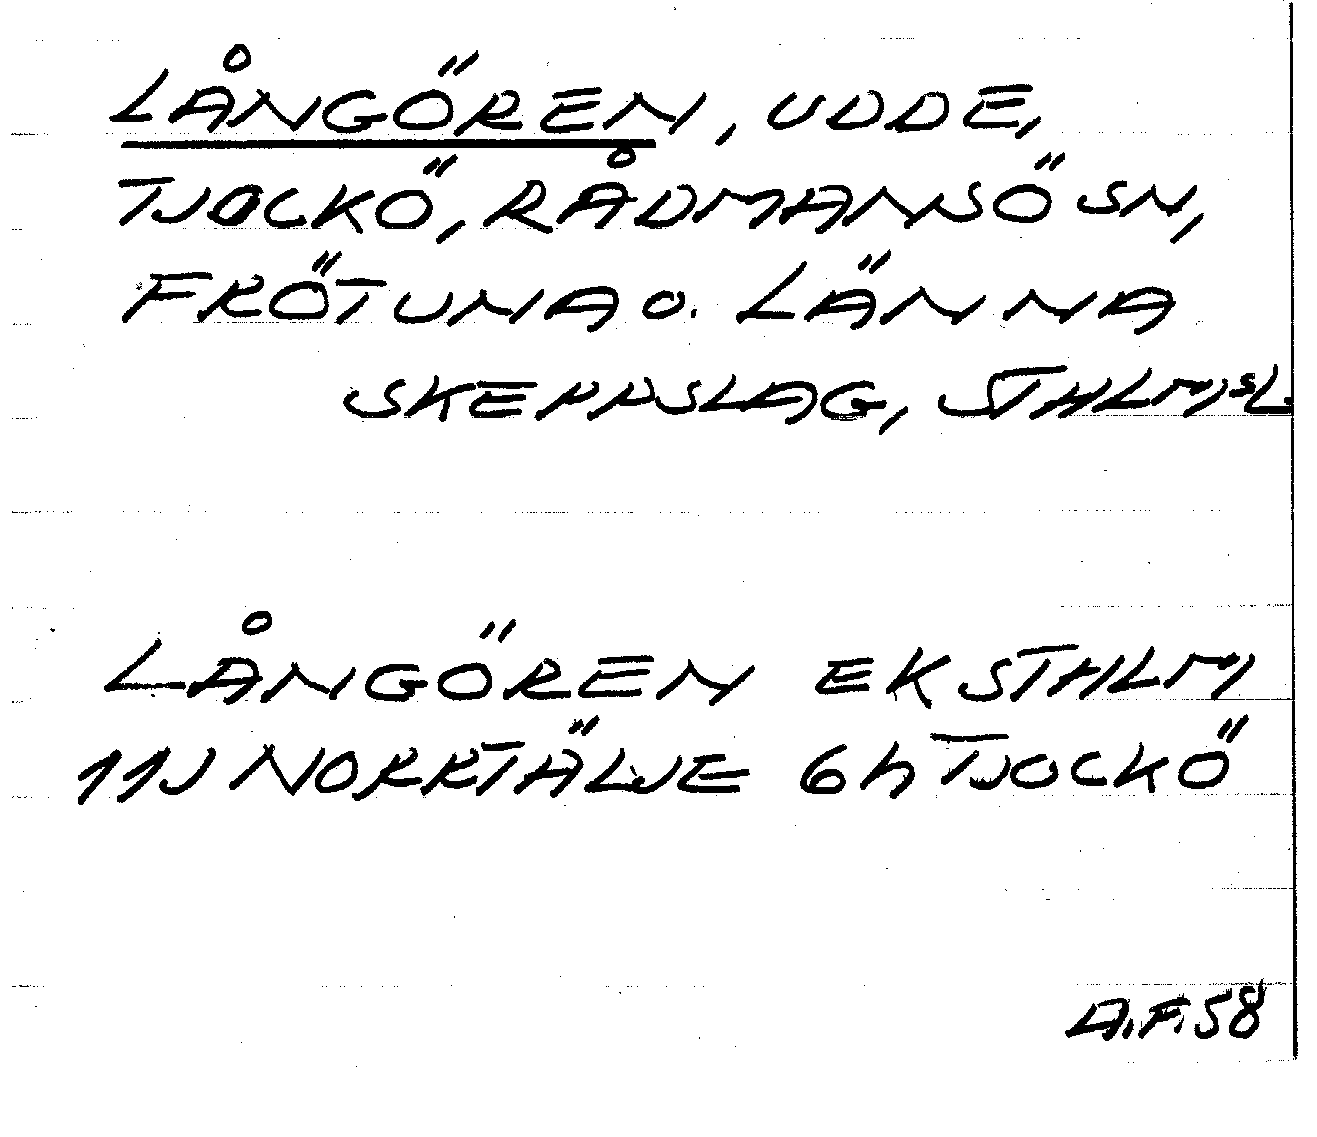 LÅNGÖREN, UDDE,
TJOCKÖ, RÅDMANSÖ SN,
FRÖTUNA O. LÄNNA
SKEPPSLAG, STHLMSL.
LÅNGÖREN EK STHLM
11J NORRTÄLJE 6h TJOCKÖ
A.F. 58